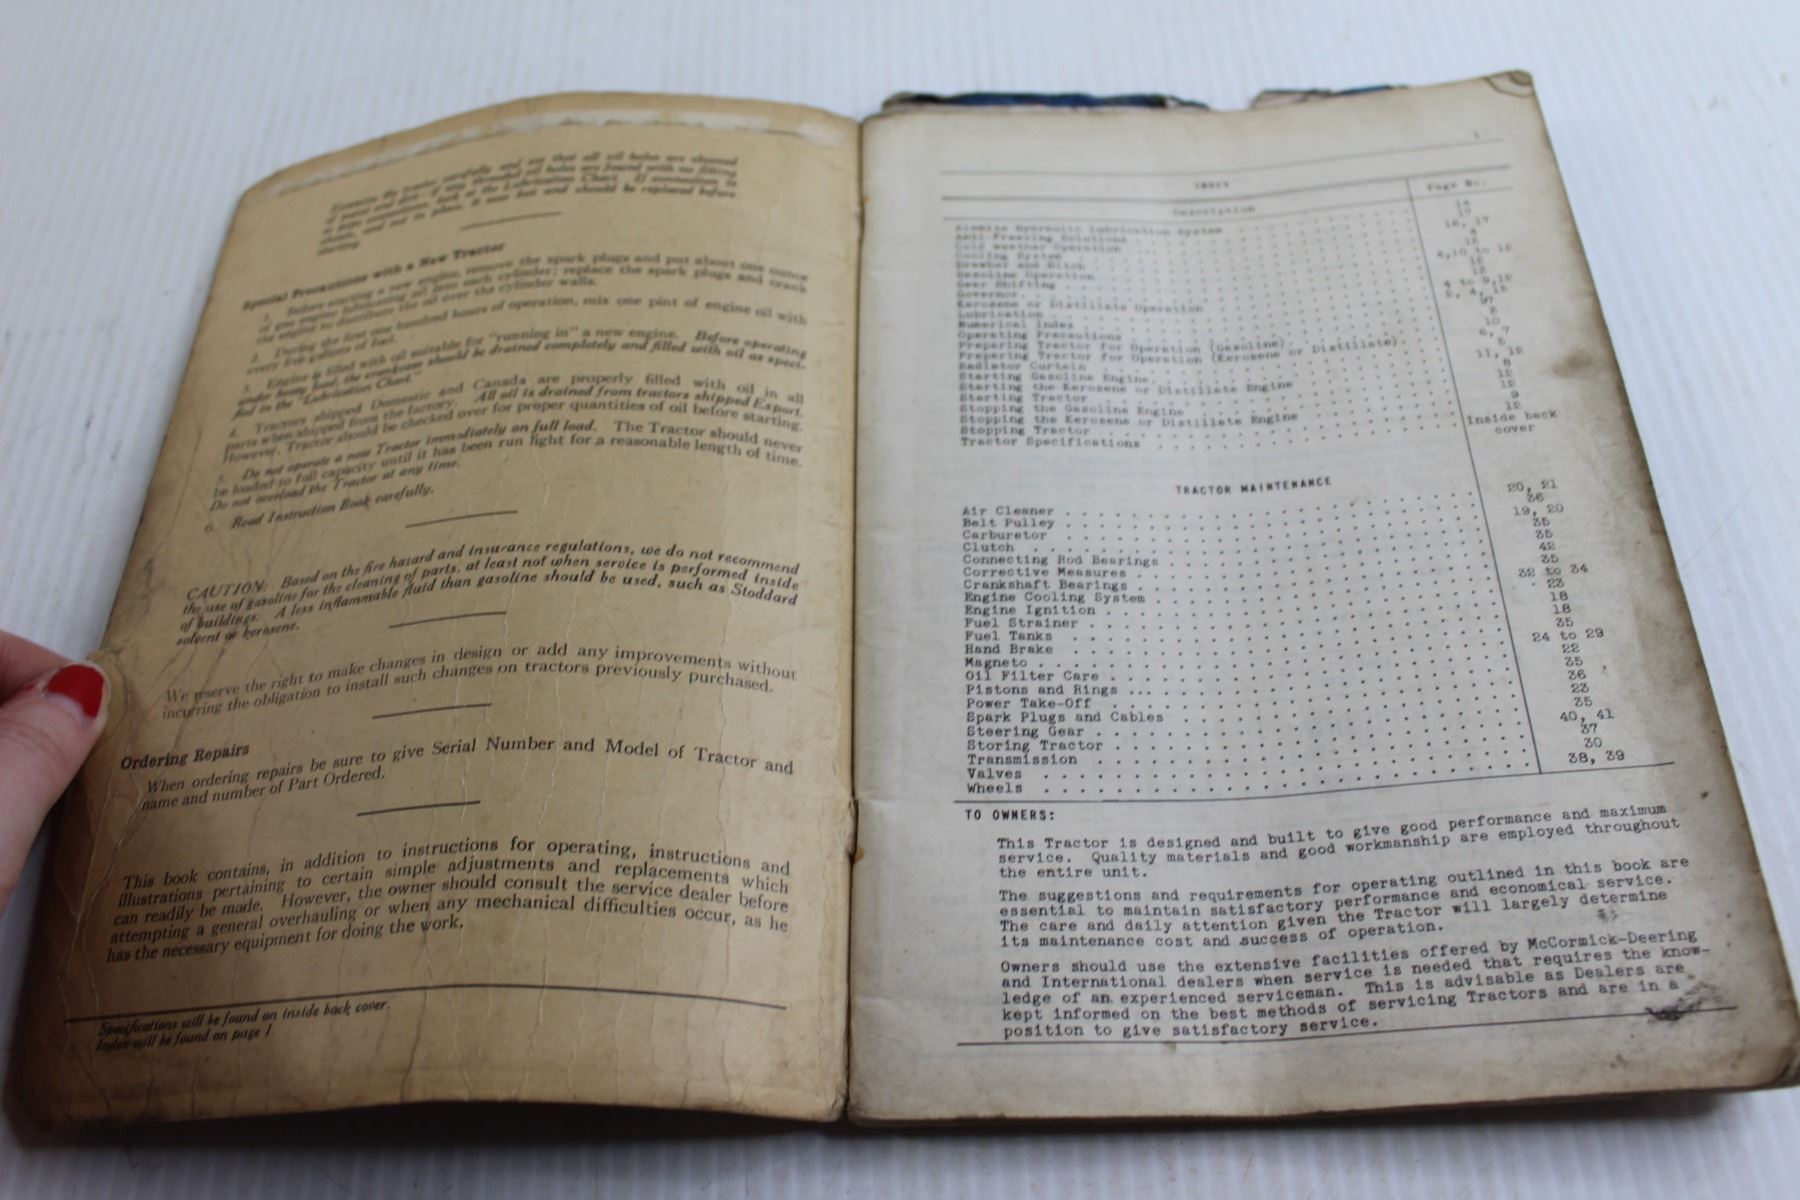 Examine the tractor carefully and see that all oil holes are cleaned
of paint and dirt. If any threaded oil holes are found with no fitting
or pipe connections, look at the Lubrication Chart. If connection is
shown, and not in place, it was lost and should be replaced before
starting.
Special Precautions with a New Tractor
1. Before starting a new engine, remove the spark plugs and put about one ounce
of gas engine lubricating oil into each cylinder; replace the spark plugs and crank
the engine to distribute the oil over the cylinder walls.
2. During the first one hundred hours of operation, mix one pint of engine oil with
every five gallons of fuel.
3. Engine is filled with oil suitable for "running in" a new engine. Before operating
under heavy load, the crankcase should be drained completely and filled with oil as speci-
fied in the "Lubrication Chart."
4. Tractors shipped Domestic and Canada are properly filled with oil in all
parts when shipped from the factory. All oil is drained from tractors shipped Export.
However, Tractor should be checked over for proper quantities of oil before starting.
5. Do not operate a new Tractor immediately on full load. The Tractor should never
be loaded to full capacity until it has been run light for a reasonable length of time.
Do not overload the Tractor at any time.
6. Read Instruction Book carefully.
CAUTION: Based on the fire hazard and insurance regulations, we do not recommend
the use of gasoline for the cleaning of parts, at least not when service is performed inside
of buildings. A less inflammable fluid than gasoline should be used, such as Stoddard
solvent or kerosene.
We reserve the right to make changes in design or add any improvements without
incurring the obligation to install such changes on tractors previously purchased.
Ordering Repairs
When ordering repairs be sure to give Serial Number and Model of Tractor and
name and number of Part Ordered.
This book contains, in addition to instructions for operating, instructions and
illustrations pertaining to certain simple adjustments and replacements which
can readily be made. However, the owner should consult the service dealer before
attempting a general overhauling or when any mechanical difficulties occur, as he
has the necessary equipment for doing the work.
Specifications will be found on inside back cover.
Index will be found on page 1.
1
INDEX
Description Page No.
Alemite Hydraulic Lubrication System 14
Anti-Freezing Solutions 17
Cold Weather Operation 16, 17
Cooling System 4
Drawbar and Hitch 12
Gasoline Operation 4, 10 to 12
Gear Shifting 12
Governor 12
Kerosene or Distillate Operation 4 to 9, 12
Lubrication 2, 4, 15
Numerical Index 97
Operating Precautions 2
Preparing Tractor for Operation (Gasoline) 10
Preparing Tractor for Operation (Kerosene or Distillate) 6, 7
Radiator Curtain 5
Starting Gasoline Engine 11, 12
Starting the Kerosene or Distillate Engine 8
Starting Tractor 12
Stopping the Gasoline Engine 12
Stopping the Kerosene or Distillate Engine 9
Stopping Tractor 12
Tractor Specifications Inside back
cover
TRACTOR MAINTENANCE
Air Cleaner 20, 21
Belt Pulley 36
Carburetor 19, 20
Clutch 35
Connecting Rod Bearings 35
Corrective Measures 42
Crankshaft Bearings 35
Engine Cooling System 32 to 34
Engine Ignition 23
Fuel Strainer 18
Fuel Tanks 18
Hand Brake 35
Magneto 24 to 29
Oil Filter Care 22
Pistons and Rings 35
Power Take-Off 36
Spark Plugs and Cables 23
Steering Gear 35
Storing Tractor 40, 41
Transmission 37
Valves 30
Wheels 38, 39
TO OWNERS:
This Tractor is designed and built to give good performance and maximum
service. Quality materials and good workmanship are employed throughout
the entire unit.
The suggestions and requirements for operating outlined in this book are
essential to maintain satisfactory performance and economical service.
The care and daily attention given the Tractor will largely determine
its maintenance cost and success of operation.
Owners should use the extensive facilities offered by McCormick-Deering
and International dealers when service is needed that requires the know-
ledge of an experienced serviceman. This is advisable as Dealers are
kept informed on the best methods of servicing Tractors and are in a
position to give satisfactory service.